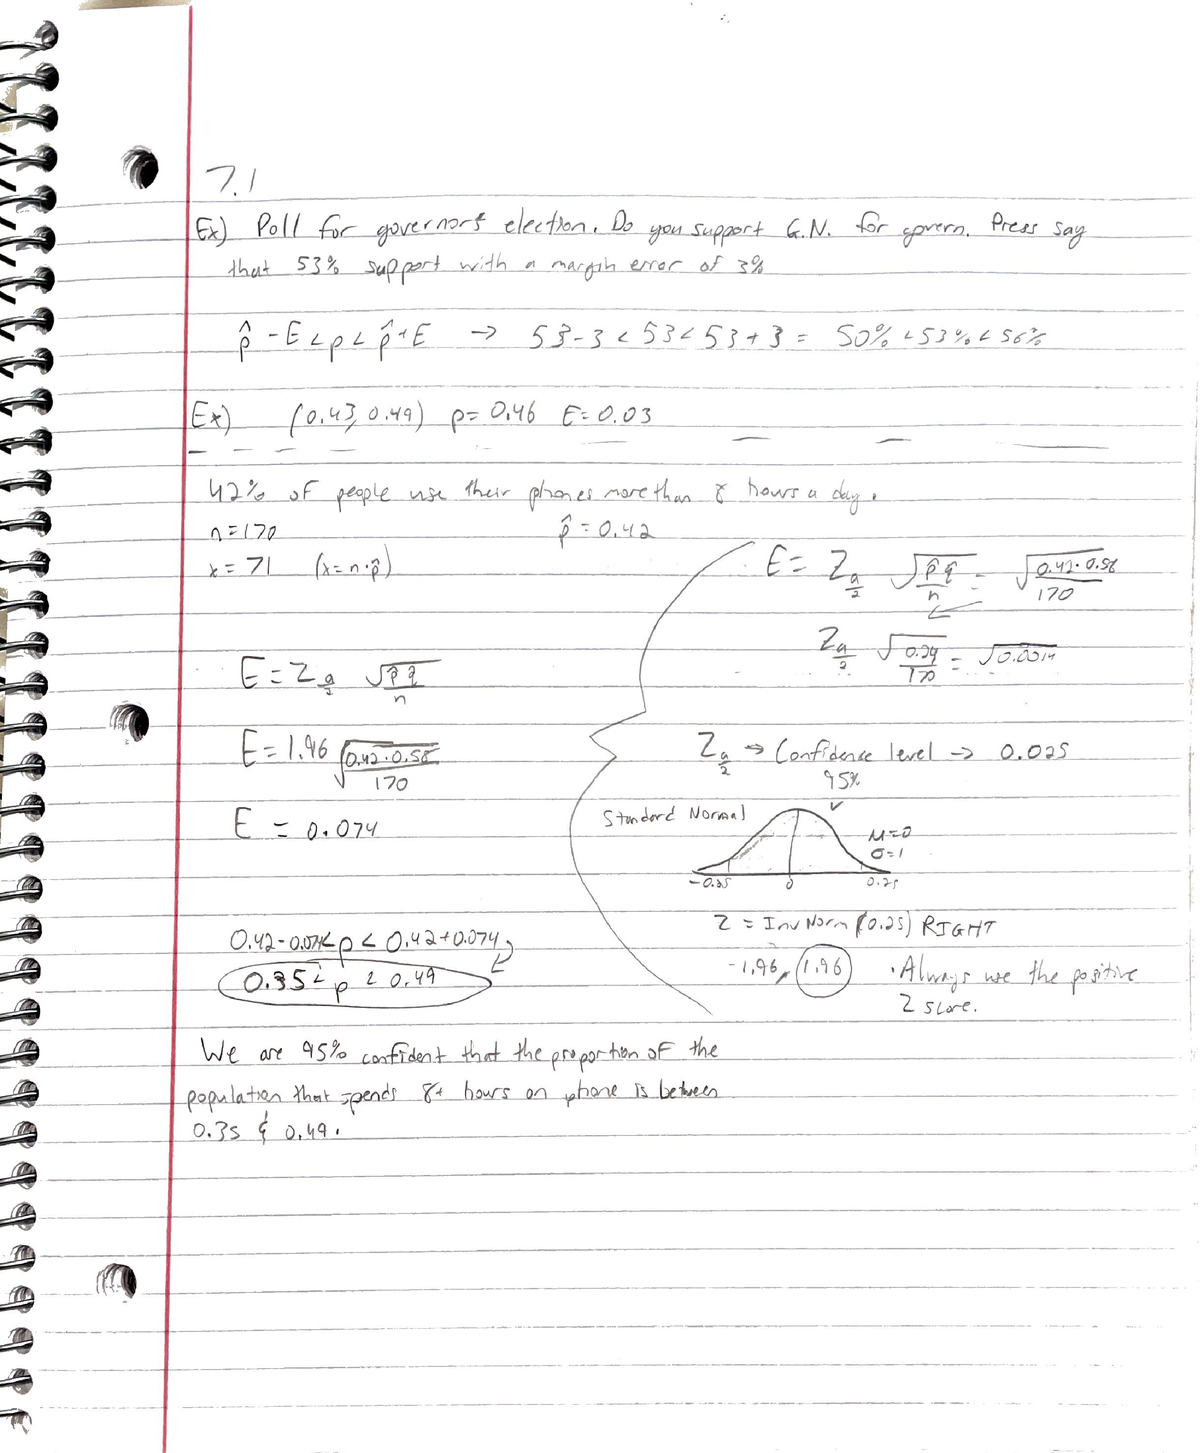 7.1
Ex) Poll for governors election. Do you support G.N. for govern. Press say
that 53% support with a margin error of 3%
p̂ - E < p < p̂ + E → 53-3 < 53 < 53+3 = 50% < 53% < 56%
Ex) (0.43, 0.49) p= 0.46 E= 0.03
42% of people use their phones more than 8 hours a day.
n=170 p̂ = 0.42
x= 71 (x=n·p̂)
E = Z a/2 √p̂ q̂ / n
E = 1.96 √0.42·0.58 / 170
E = 0.074
0.42-0.074 < p < 0.42+0.074
0.35 < p < 0.49
E = Z a/2 √p̂ q̂ / n = √0.42·0.58 / 170
Z a/2 √0.24 / 170 = √0.0014
Z a/2 → Confidence level → 0.025
95%
Standard Normal
μ=0
σ=1
-0.25 0 0.25
Z = Inv Norm (0.25) RIGHT
-1.96, 1.96 · Always use the positive
Z score.
We are 95% confident that the proportion of the
population that spends 8+ hours on phone is between
0.35 & 0.49.